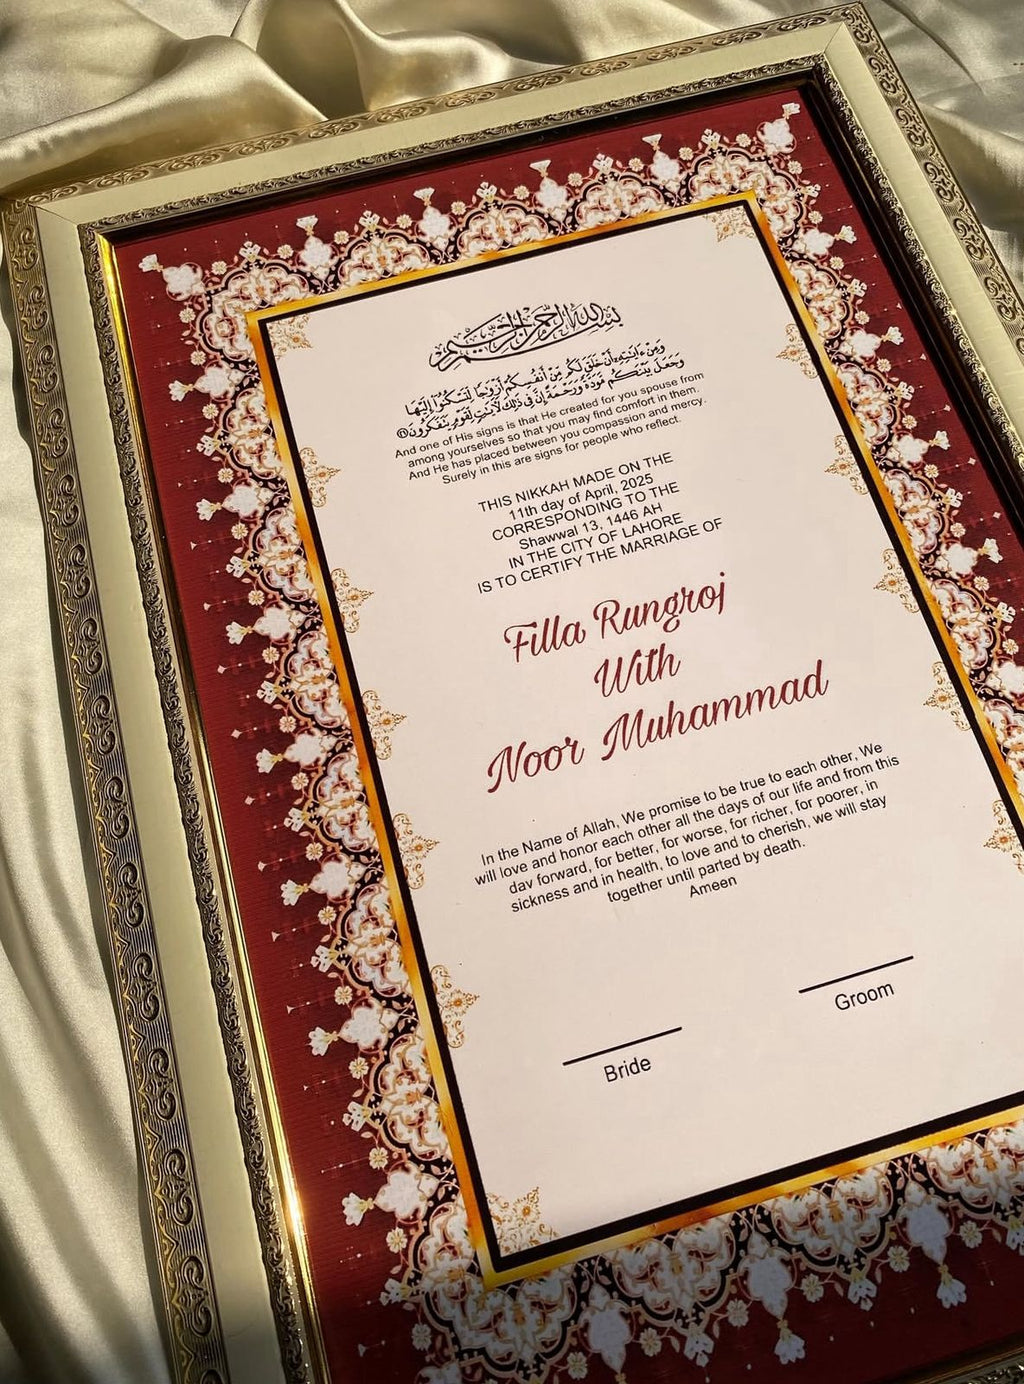 بسم الله الرحمن الرحيم
وَمِنْ ءَايَٰتِهِۦٓ أَنْ خَلَقَ لَكُم مِّنْ أَنفُسِكُمْ أَزْوَٰجًا لِّتَسْكُنُوٓا۟ إِلَيْهَا
وَجَعَلَ بَيْنَكُم مَّوَدَّةً وَرَحْمَةً إِنَّ فِى ذَٰلِكَ لَءَايَٰتٍ لِّقَوْمٍ يَتَفَكَّرُونَ
And one of His signs is that He created for you spouse from
among yourselves so that you may find comfort in them.
And He has placed between you compassion and mercy.
Surely in this are signs for people who reflect.
THIS NIKKAH MADE ON THE
11th day of April, 2025
CORRESPONDING TO THE
Shawwal 13, 1446 AH
IN THE CITY OF LAHORE
IS TO CERTIFY THE MARRIAGE OF
Filla Rungroj
With
Noor Muhammad
In the Name of Allah, We promise to be true to each other, We
will love and honor each other all the days of our life and from this
day forward, for better, for worse, for richer, for poorer, in
sickness and in health, to love and to cherish, we will stay
together until parted by death.
Ameen
Groom
Bride